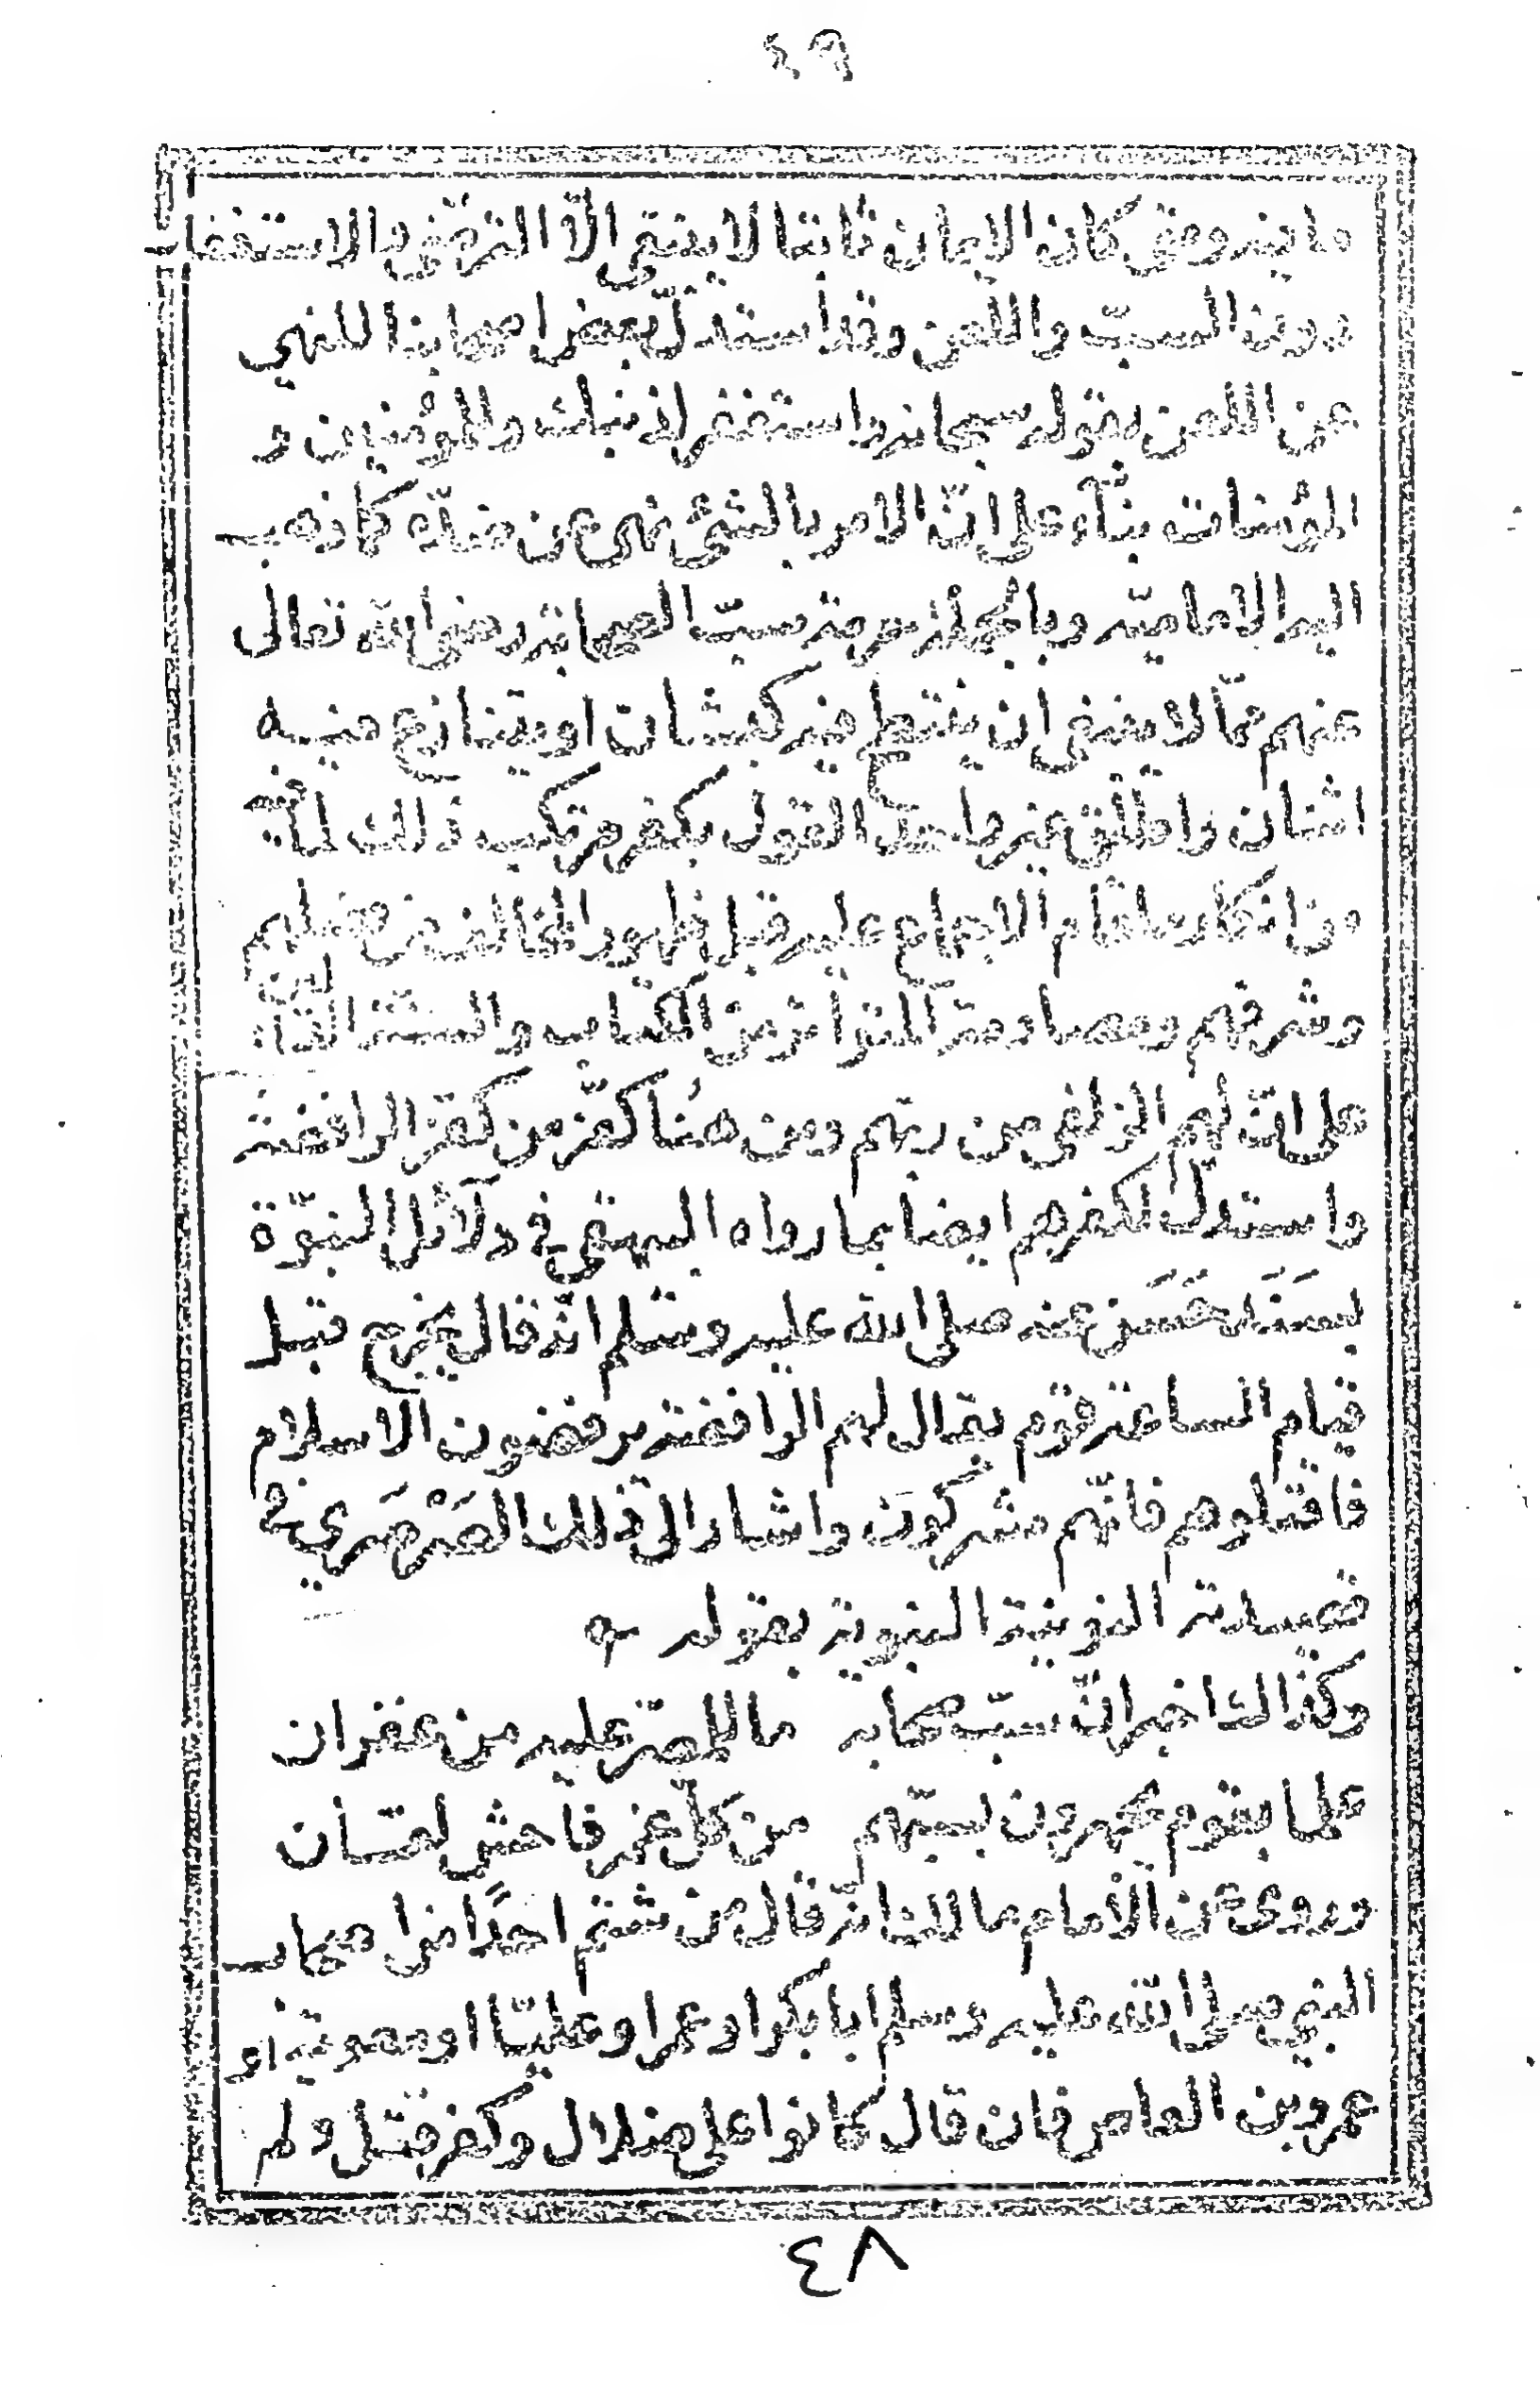 ٤٩
ما فيه ومتى كان الايمان ثابتا لا ينبغي الّا الترضّي والاستغفار
دون السبّ واللعن وقد أستدلّ بعض اصحابنا للنهي
عن اللعن بقوله سبحانه واستغفر لذنبك وللمؤمنين و
المؤمنات بنآء على انّ الامر بالشئ نهى عن ضدّه كما ذهب
اليه الاماميّه وبالجملة حرمة سبّ الصحابة رضى الله تعالى
عنهم ممّا لا ينبغى ان ينتطح فيه كبشان او يتنازع فيه
اثنان واطلق غير واحد القول بكفر مرتكب ذلك لما فيه
من انكار ما قام الاجماع عليه قبل ظهور المخالف من فضلهم
وشرفهم ومصادمة المتواتر من الكتاب والسنة الدالة
على انّ لهم الزلفى من ربّهم ومن هنا كفّر من كفّر الرافضة
واستدلّ لكفرهم ايضا بما رواه البيهقي في دلآئل النبوّة
بسَنَد حَسَن عنه صلى الله عليه وسلم انّه قال يخرج قبل
قيام الساعة قوم يقال لهم الرّافضة يرفضون الاسلام
فاقتلوهم فانّهم مشركون واشار الى ذلك الصَرْصَري في
قصيدته النونية النبوية بقوله
وكذاك اخبر انّ سبّ صحابه ما للمصرّ عليه من غفران
علما بقوم يجهرون بسبّهم من كلّ غمر فاحش لعّان
وروى عن الامام مالك انّه قال من شتم احدًا من اصحاب
النبي صلى الله عليه وسلم ابا بكر او عمر او عليّا او معوية او
عمرو بن العاص فان قال كانوا على ضلال وكفر قتل ولم
٤٨